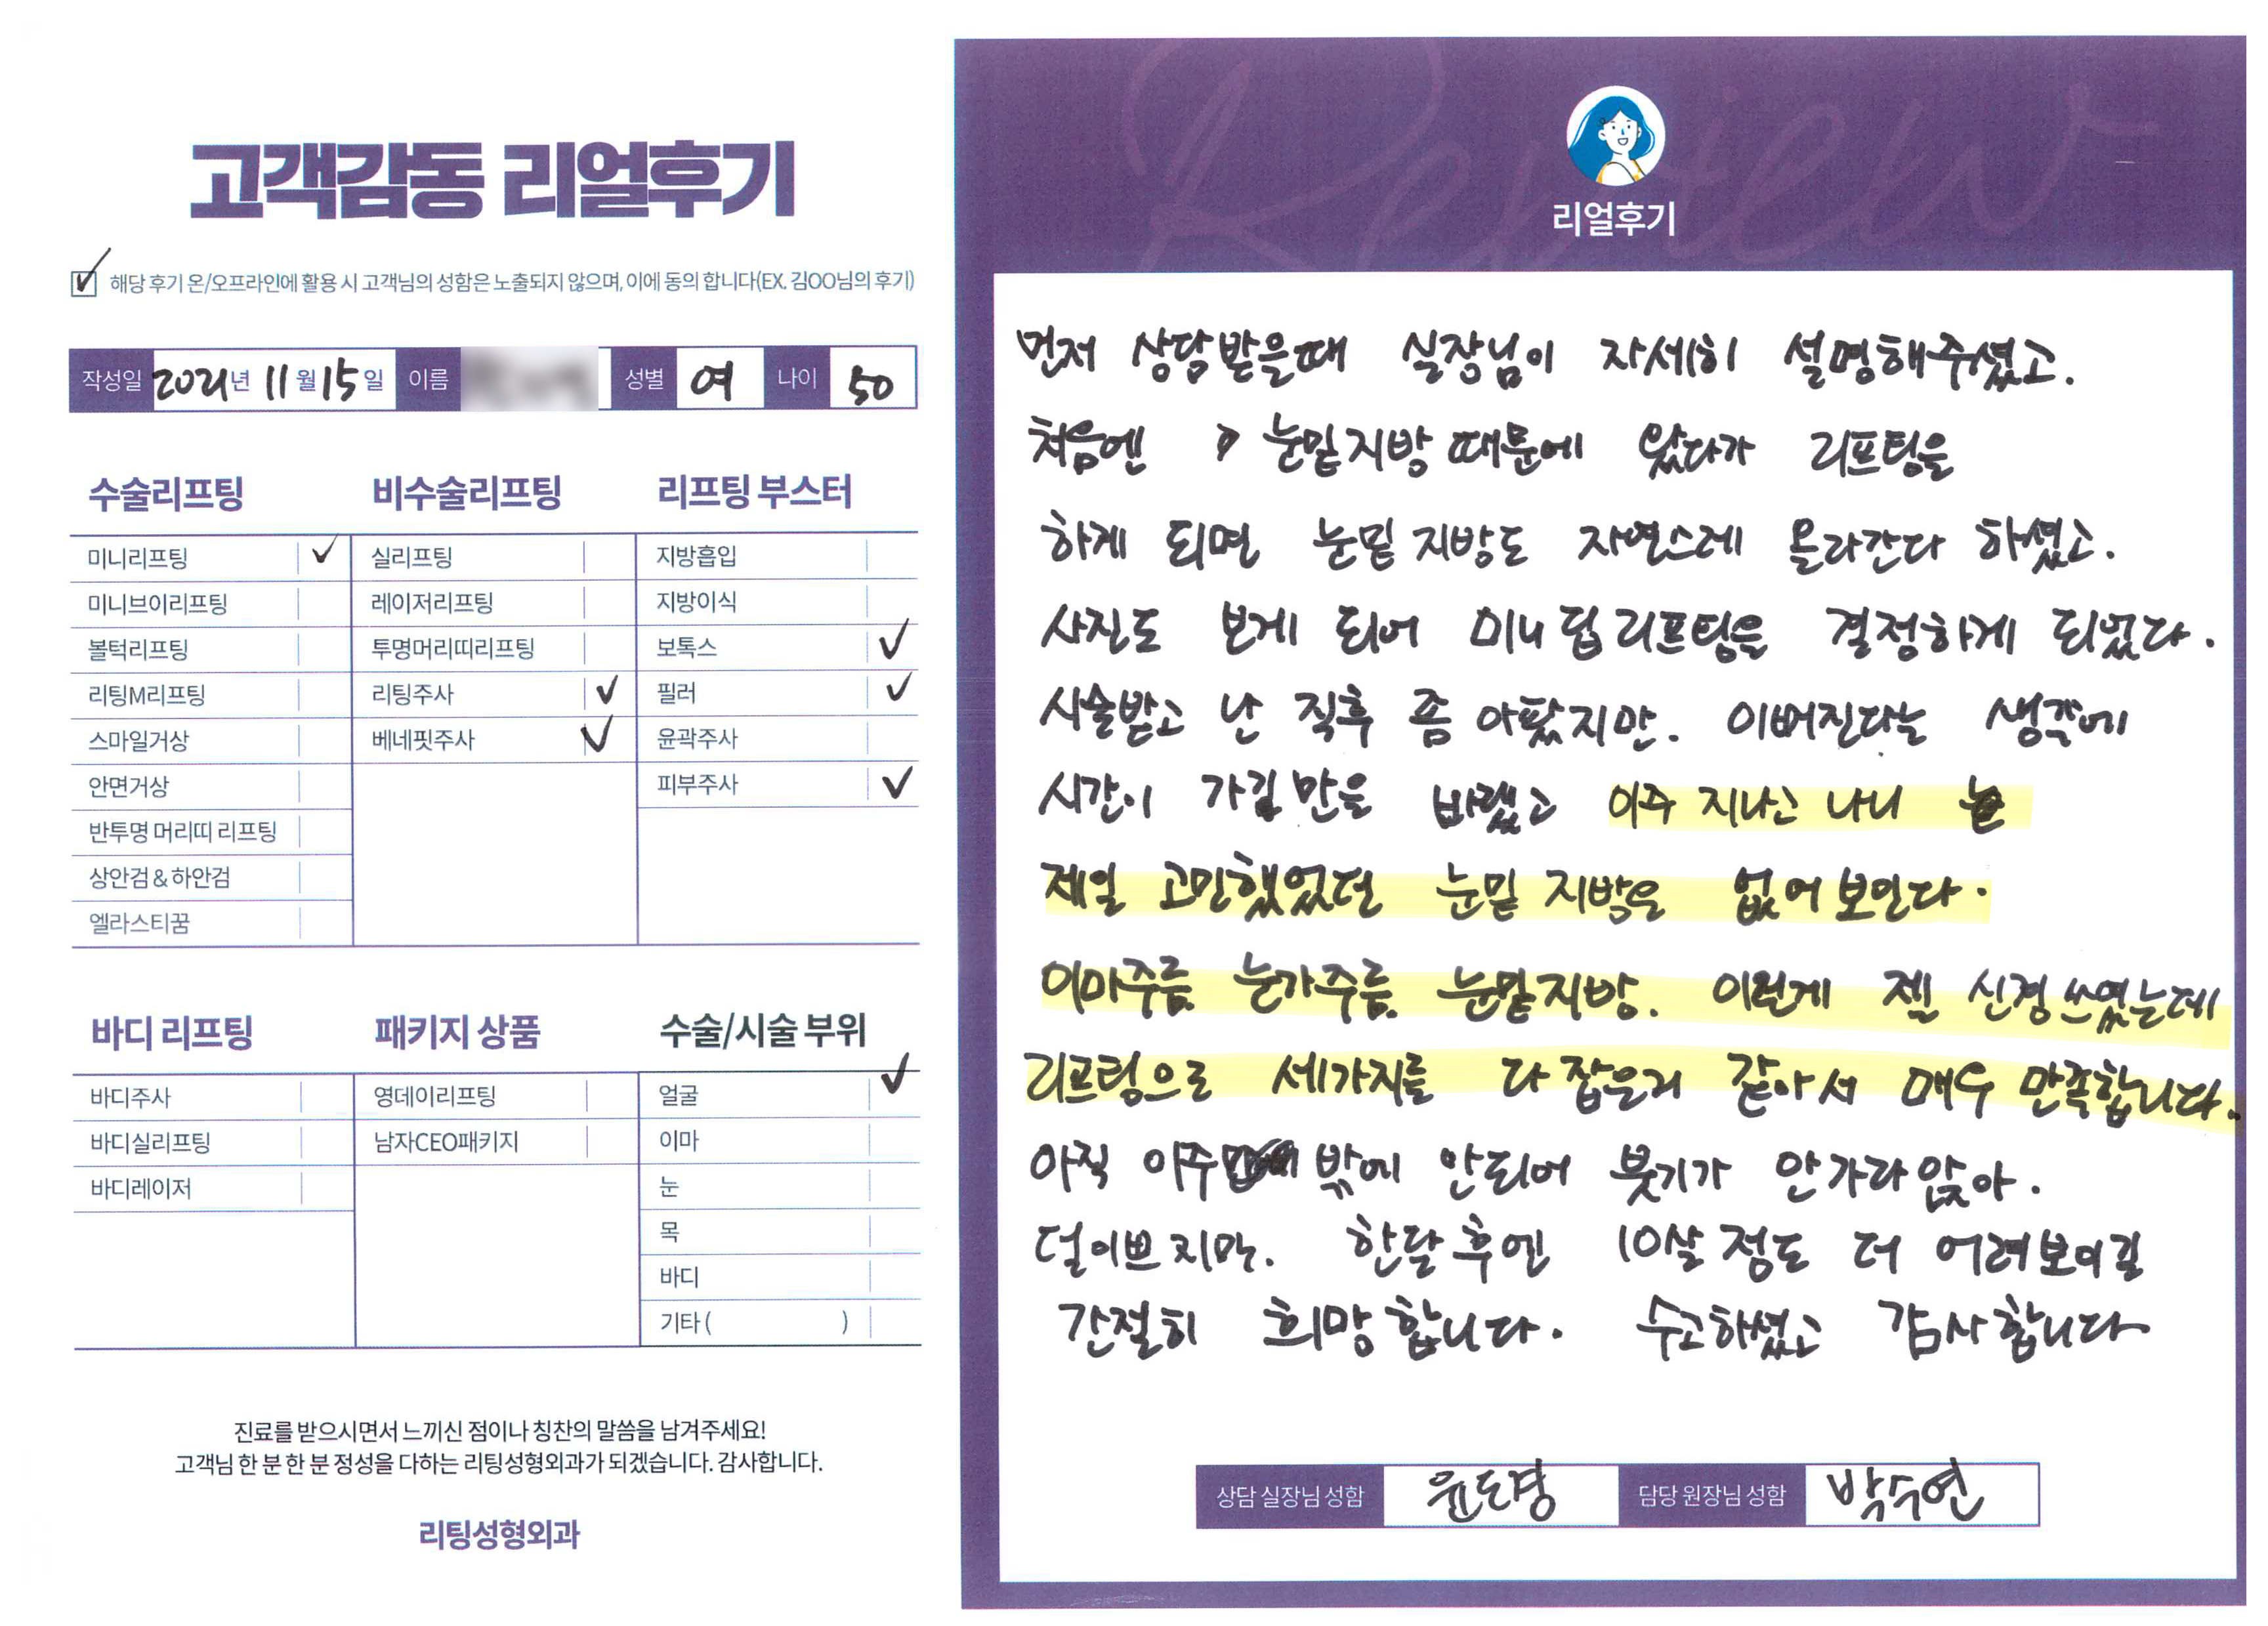 고객감동 리얼후기
해당 후기 온/오프라인에 활용 시 고객님의 성함은 노출되지 않으며, 이에 동의 합니다(EX. 김OO님의 후기)
작성일 2021년 11월 15일 이름 성별 여 나이 50
수술리프팅
미니리프팅
미니브이리프팅
볼턱리프팅
리팅M리프팅
스마일거상
안면거상
반투명 머리띠 리프팅
상안검 & 하안검
엘라스티꿈
비수술리프팅
실리프팅
레이저리프팅
투명머리띠리프팅
리팅주사
베네핏주사
리프팅 부스터
지방흡입
지방이식
보톡스
필러
윤곽주사
피부주사
바디 리프팅
바디주사
바디실리프팅
바디레이저
패키지 상품
영데이리프팅
남자CEO패키지
수술/시술 부위
얼굴
이마
눈
목
바디
기타 ( )
진료를 받으시면서 느끼신 점이나 칭찬의 말씀을 남겨주세요!
고객님 한 분 한 분 정성을 다하는 리팅성형외과가 되겠습니다. 감사합니다.
리팅성형외과
Review
리얼후기
먼저 상담받을때 실장님이 자세히 설명해주셨고.
처음엔 눈밑지방 때문에 왔다가 리프팅을
하게 되면 눈밑 지방도 자연스레 올라간다 하셨고.
사진도 보게 되어 미니 딥 리프팅을 결정하게 되었다.
시술받고 난 직후 좀 아팠지만. 이뻐진다는 생각에
시간이 가길 만을 바랬고 이주 지나고 나니
제일 고민했었던 눈밑 지방은 없어 보인다.
이마주름 눈가주름 눈밑지방. 이런게 젤 신경 쓰였는데
리프팅으로 세가지를 다 잡은거 같아서 매우 만족합니다.
아직 이주 밖에 안되어 붓기가 안 가라앉아.
덜이쁘지만. 한달 후엔 10살 정도 더 어려보이길
간절히 희망합니다. 수고하셨고 감사합니다
상담 실장님 성함 윤도경 담당 원장님 성함 박수연